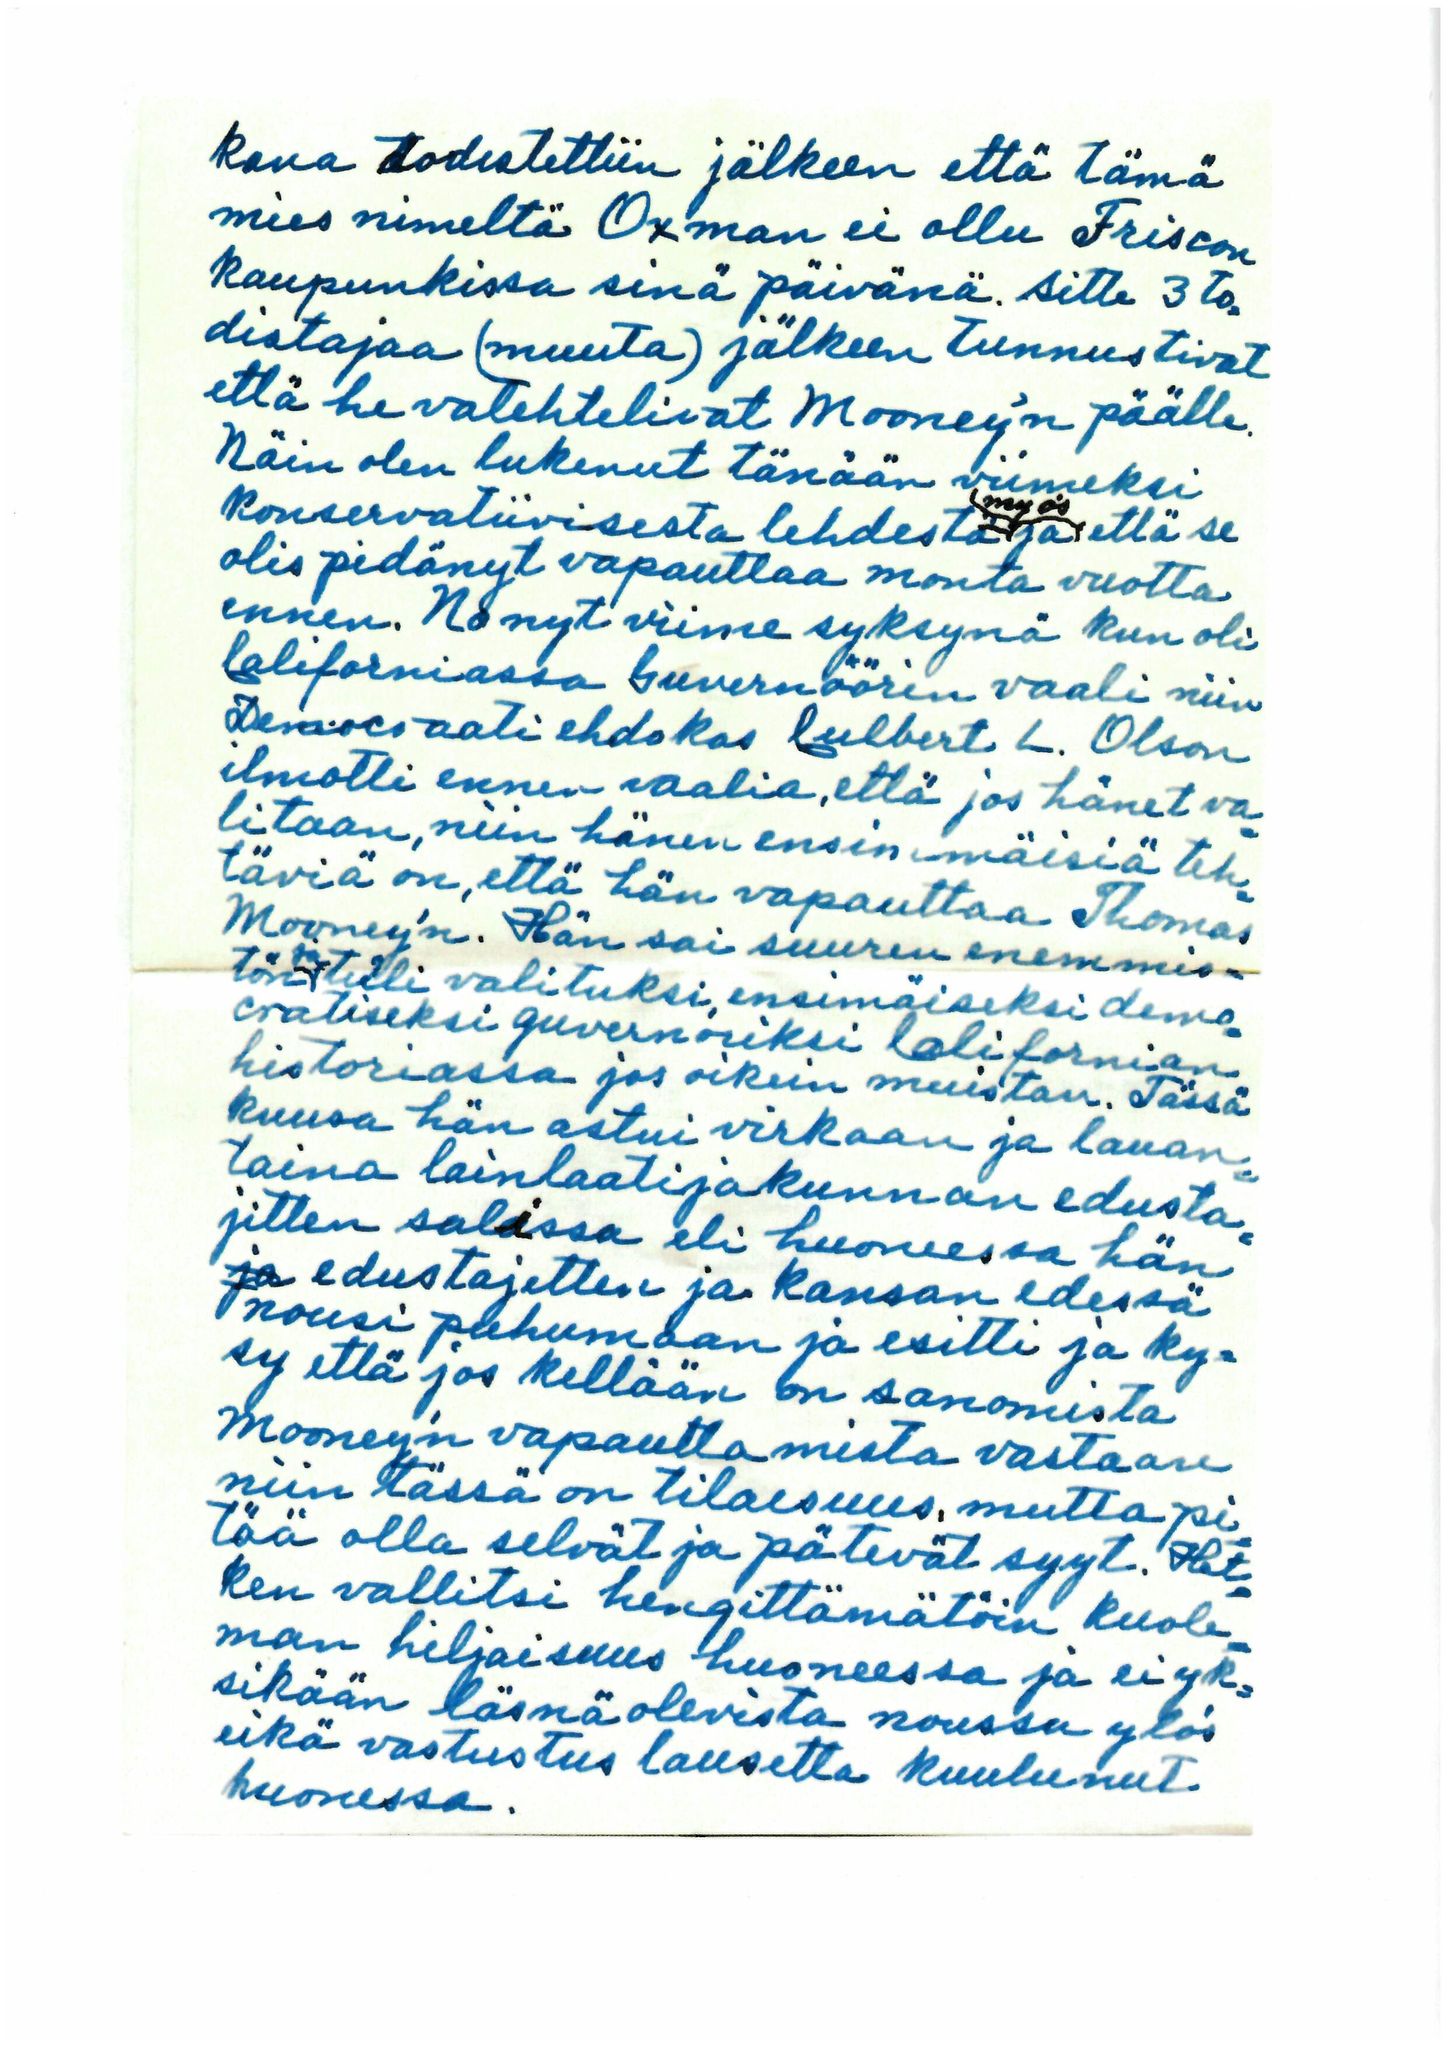 kana todistettiin jälkeen että tämä
mies nimeltä Oxman ei ollu Friscon
kaupunkissa sinä päivänä. Sitte 3 to=
distajaa (muuta) jälkeen tunnustivat
että he valehtelivat Mooney'n päälle.
Näin olen lukenut tänään viimeksi
konservatiivisesta lehdestä ja myös että se
olis pidänyt vapauttaa monta vuotta
ennen. No nyt viime syksynä kun oli
Californiassa Guvernöörin vaali niin
Democraati ehdokas Culbert L. Olson
ilmotti ennen vaalia, että jos hänet va=
litaan, niin hänen ensimmäisiä teh=
täviä on, että hän vapauttaa Thomas
Mooney'n. Hän sai suuren enemmis=
tön ja tuli valituksi, ensimäiseksi demo=
cratiseksi guvernöriksi Californian
historiassa jos oikein muistan. Tässä
kuusa hän astui virkaan ja lauan=
taina lainlaatijakunnan edusta=
jitten salissa eli huoneessa hän
ja edustajetten ja kansan edessä
nousi puhumaan ja esitti ja ky=
sy että jos kellään on sanomista
Mooney'n vapauttamista vastaan
niin tässä on tilaesuus, mutta pi=
tää olla selvät ja pätevät syyt. Het=
ken vallitsi hengittämätöin kuole=
man hiljaisuus huoneessa ja ei yk=
sikään läsnäolevista noussu ylös
eikä vastustus lausetta kuulunut
huonessa.